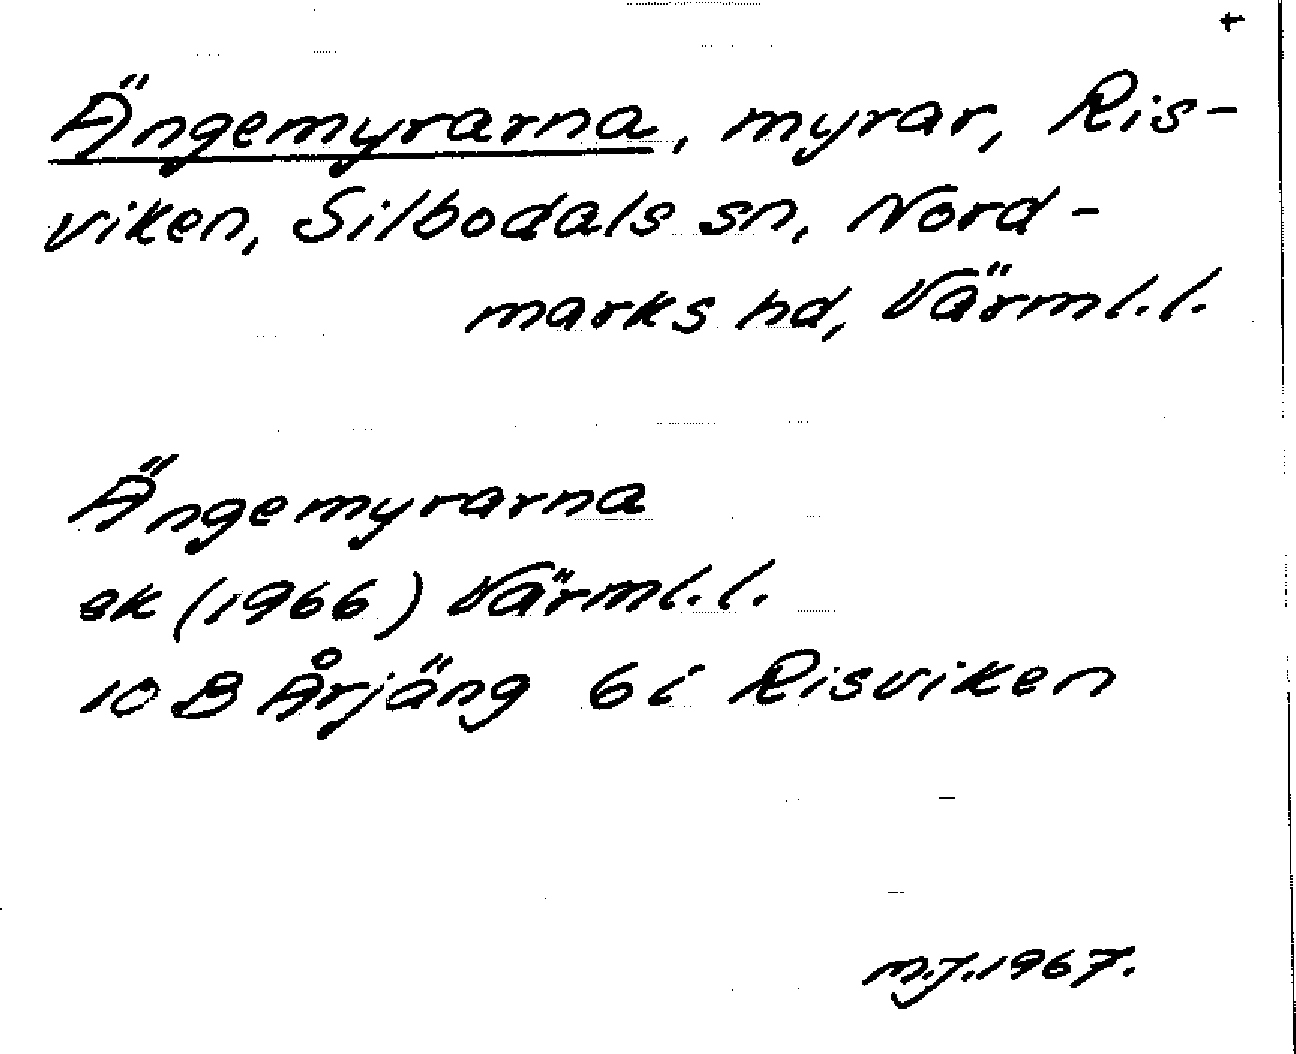 +
Ängemyrarna, myrar, Ris-
viken, Silbodals sn, Nord-
marks hd, Värml.l.
Ängemyrarna
ek (1966) Värml.l.
10 B Årjäng 6 i Risviken
M.J. 1967.